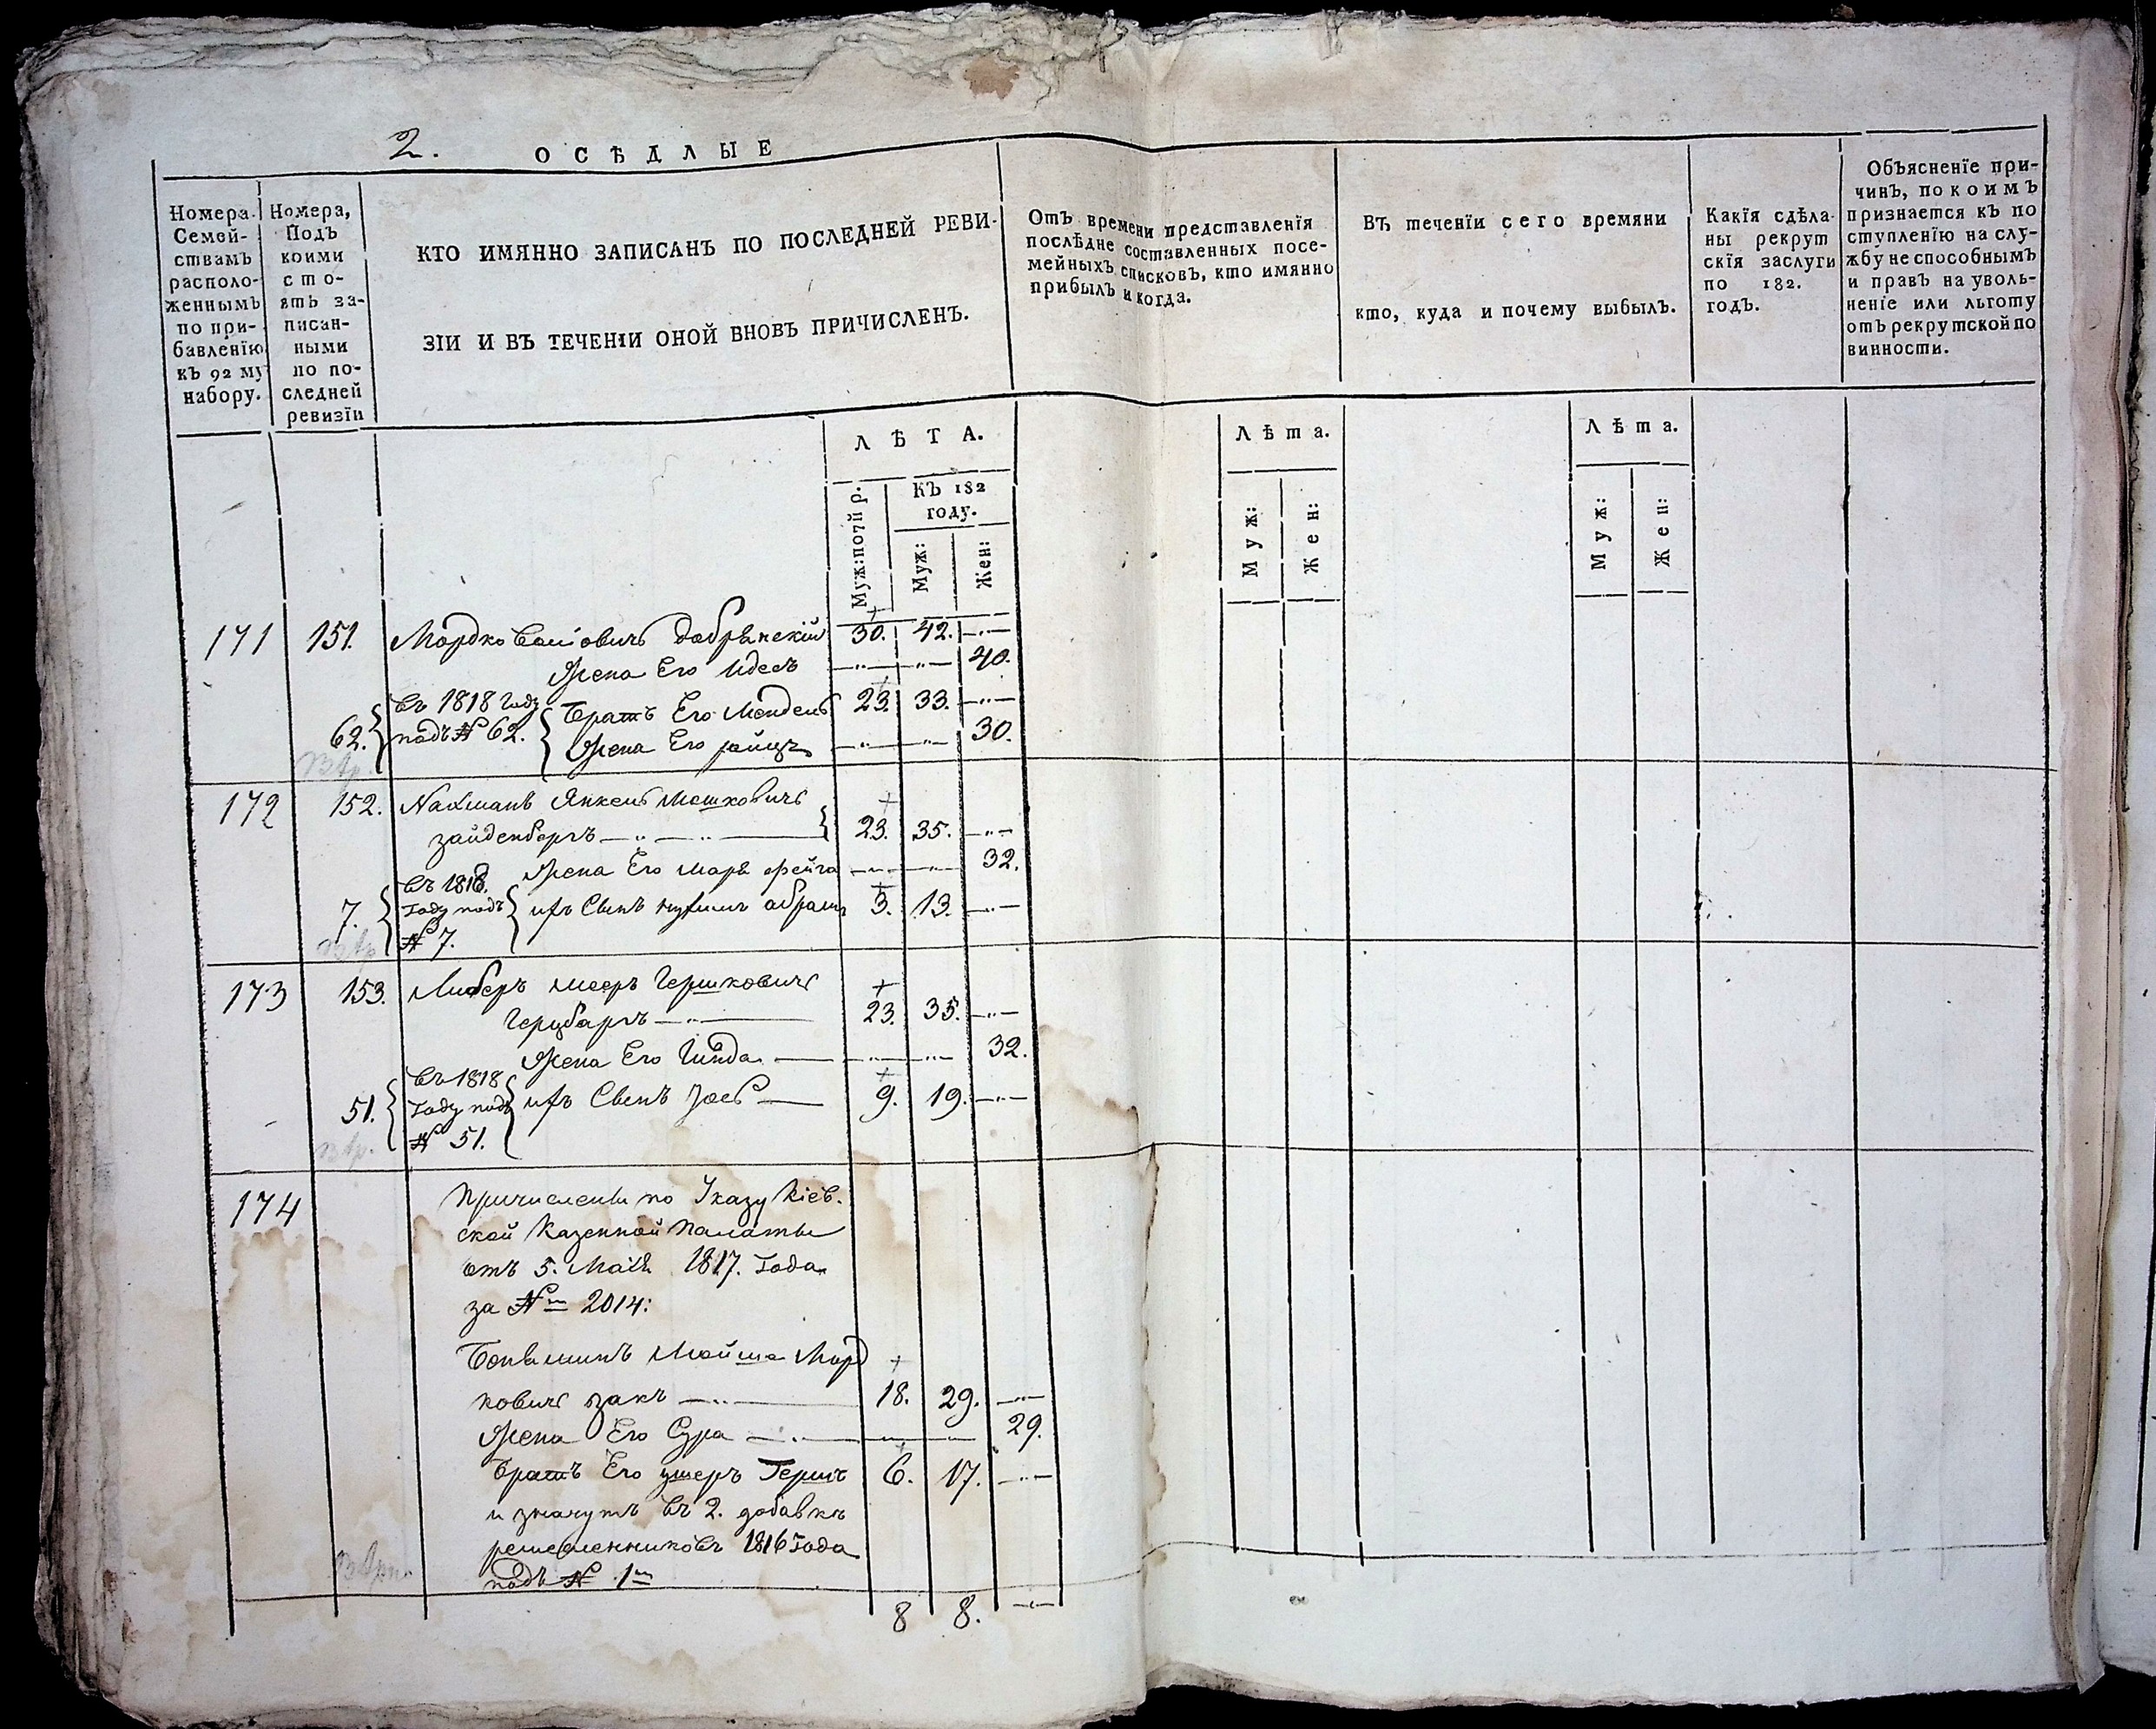 2. ОСѢДЛЫЕ
Номера Семей-
ствамъ
располо-
женнымъ
по при-
бавленїю
къ 92 му
набору.
Номера,
Подъ
коими
сто-
ятъ за-
писан-
ными
по по-
слѣдней
ревизїи
КТО ИМЯННО ЗАПИСАНЪ ПО ПОСЛЕДНЕЙ РЕВИ-
ЗІИ И ВЪ ТЕЧЕНІИ ОНОЙ ВНОВЬ ПРИЧИСЛЕНЪ.
Отъ времени представленїя
послѣдне составленныхъ посе-
мейныхъ списковъ, кто имянно
прибылъ и когда.
Въ теченїи сего времяни
кто, куда и почему выбылъ.
Какїя сдѣла-
ны рекрут
скїя заслуги
по 182.
годъ.
Объясненїе при-
чинъ, по коимъ
признается къ по
ступленїю на слу-
жбу не способнымъ
и правъ на уволь-
ненїе или льготу
отъ рекрутской по
винности.
ЛѢТА.
Лѣта.
Лѣта.
Муж: по 7й р.
КЪ 182
году.
Муж:
Жен:
Муж:
Жен:
Муж:
Жен:
171 151. Мордко Добрянскій 30. 42.
Жена Его Идесъ 40.
62. въ 1818 году подъ № 62. Братъ Его Мендель 23. 33.
Жена Его 30.
172 152. Нахманъ Янкель Мошковичъ
Зайденбергъ 23. 35.
Жена Его Марья Фейга 32.
7. въ 1818. году подъ № 7. ихъ Сынъ Абрамъ 3. 13.
173 153. Либеръ Мееръ Гершковичъ
23. 35.
Жена Его Гинда 32.
51. въ 1818 году подъ № 51. ихъ Сынъ 9. 19.
174 Причислены по Указу Кіев-
ской Казенной Палаты
отъ 5. Маія 1817. года
за №м 2014:
Боньяминъ Мойше Морд
ковичъ Закъ 18. 29.
Жена Его Сура 29.
Братъ Его Ушеръ Гершъ 6. 17.
и значутъ въ 2. добавкѣ
ремесленниковъ 1816 года
подъ № 1м
8 8.